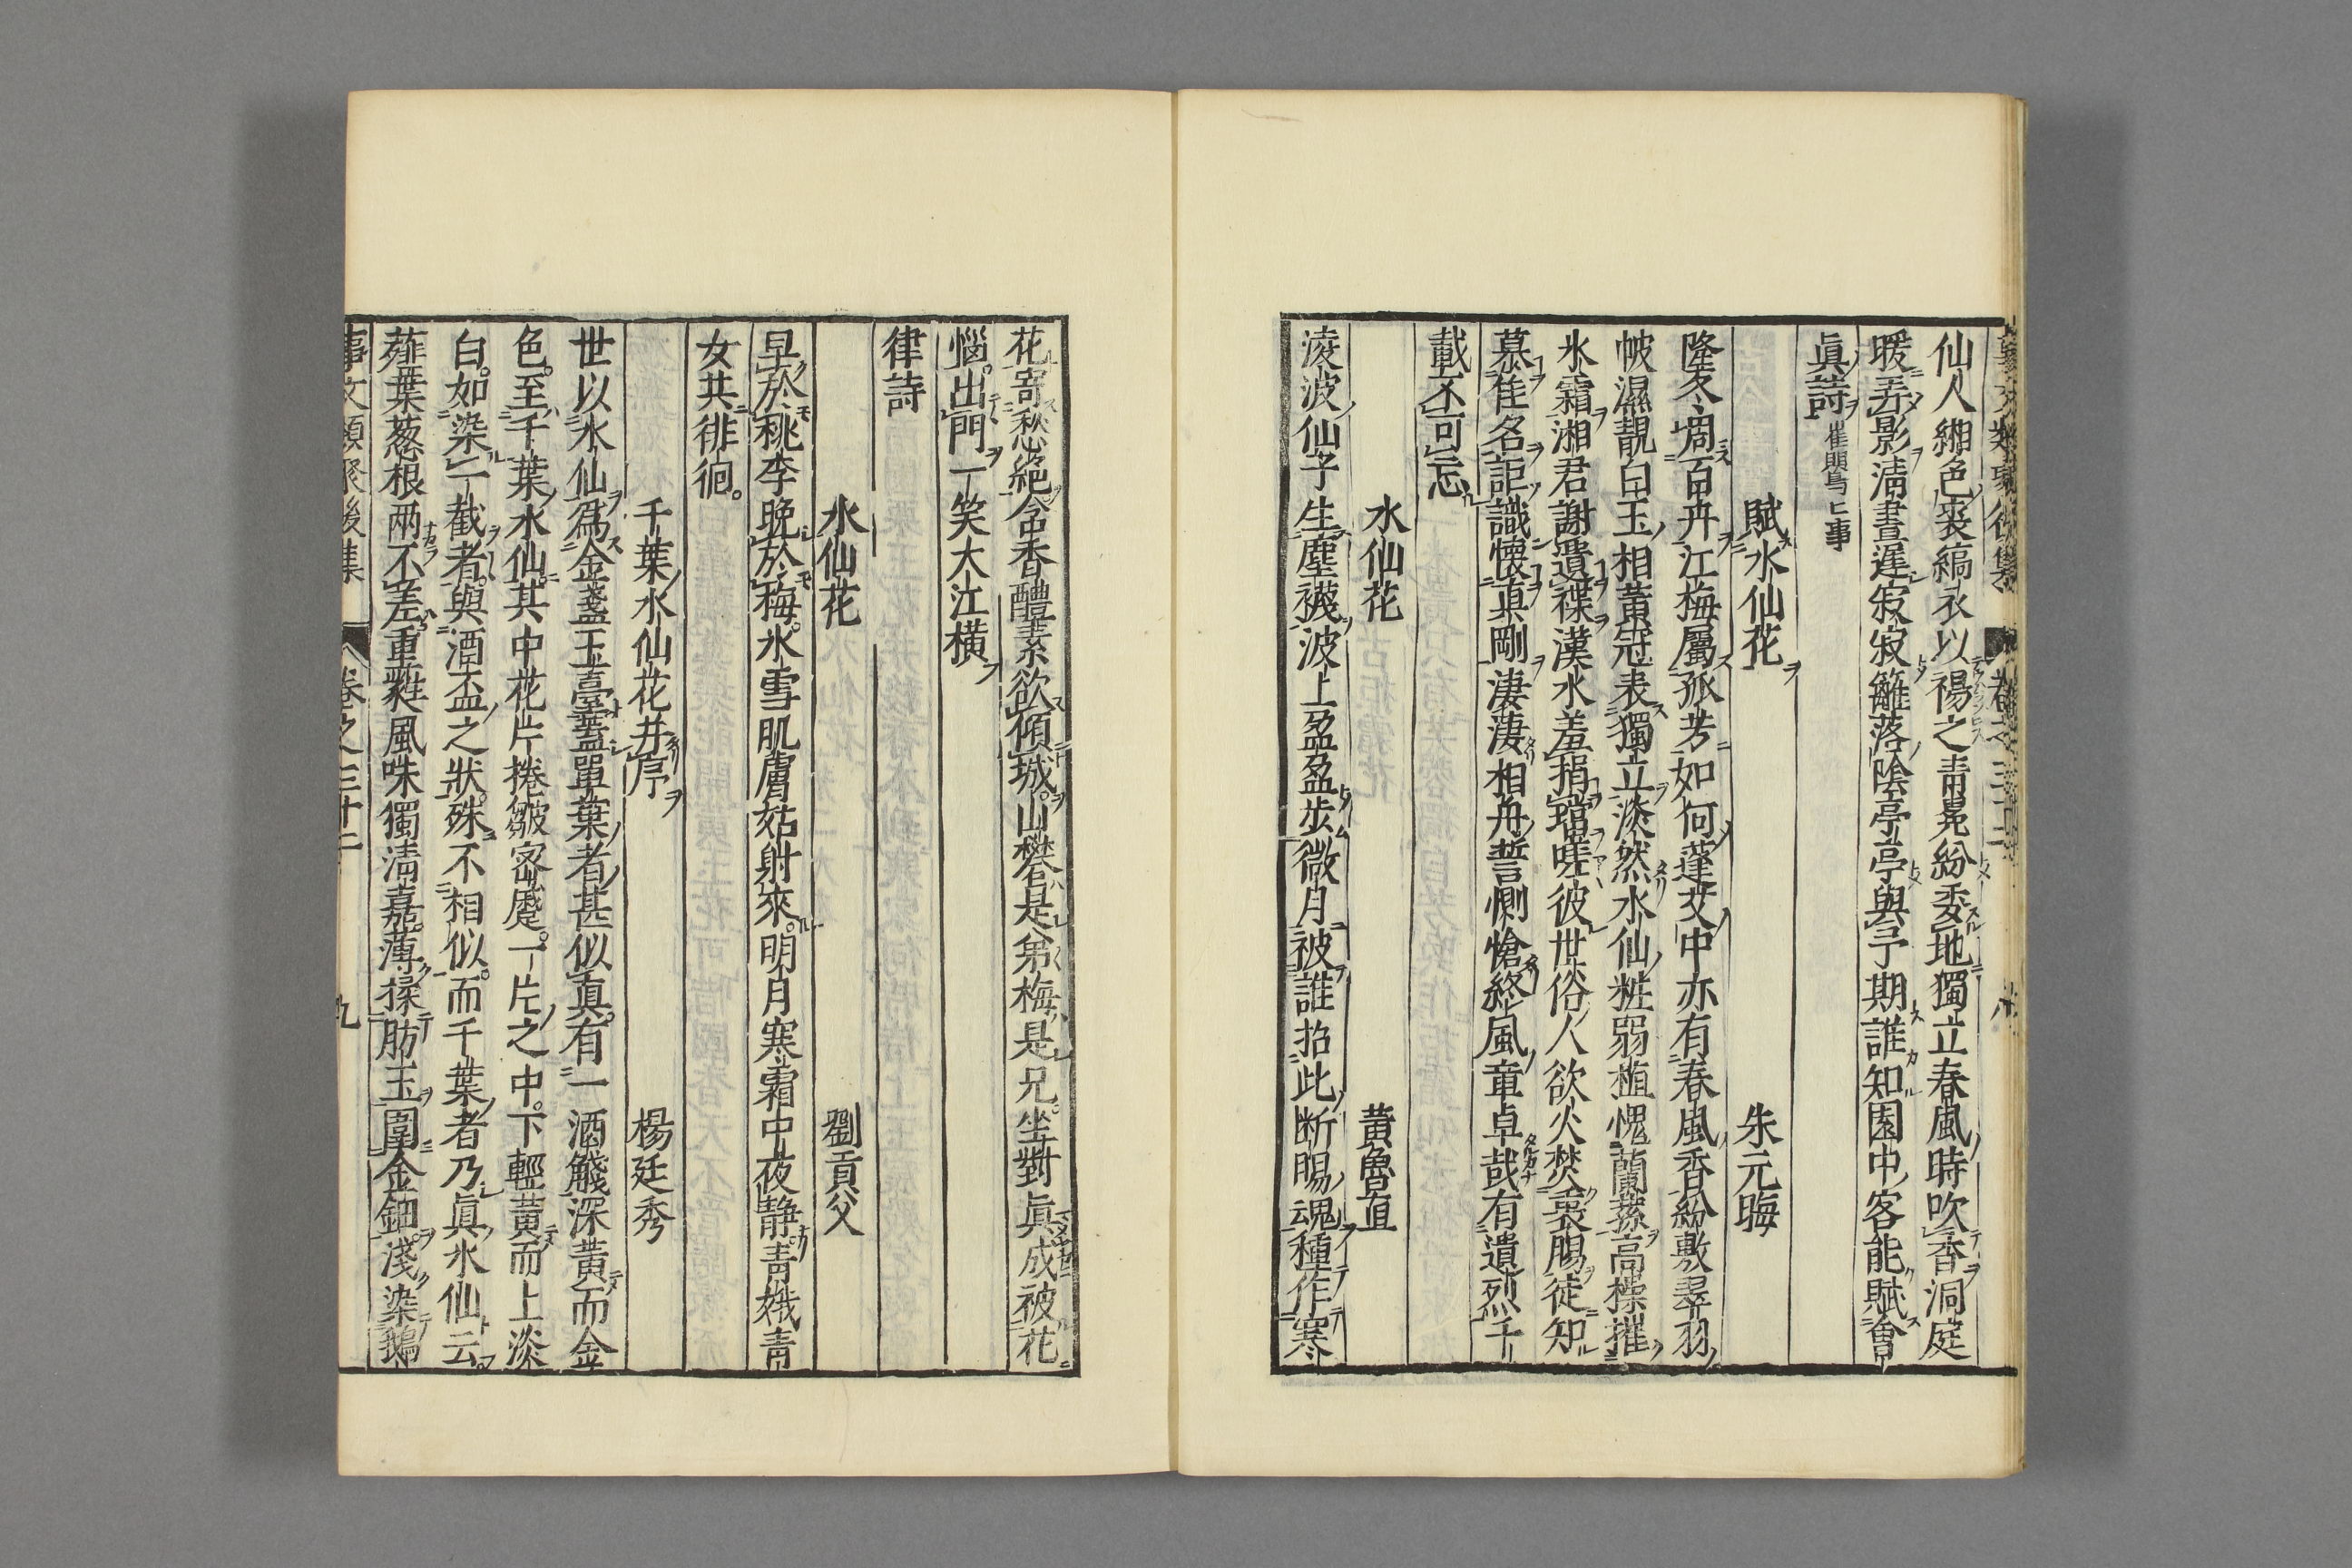 仙人緗色裘縞衣以裼之青晃紛委地獨立春風時吹香洞庭
暖弄影淸晝遲寂寂籬落陰亭亭與予期誰知園中客能賦會
眞詩崔鶯鶯事
賦水仙花　朱元晦
隆冬凋百卉江梅屬孤芳如何蓬艾中亦有春風香紛敷翠羽
帔濕靚白玉相黃冠表獨立淡然水仙粧弱植愧蘭蓀高操摧
氷霜湘君謝遺褋漢水羞捐璫嗟彼世俗人欲火焚衷腸徒知
慕佳名詎識懷貞剛淒淒相舟誓惻愴終風章卓哉有遺烈千
載不可忘
水仙花　黃魯直
淩波仙子生塵襪波上盈盈步微月被誰招此斷腸魂種作寒
花寄愁絕含香體素欲傾城。山礬是弟梅是兄。坐對眞成被花
惱。出門一笑大江橫
律詩
水仙花　劉貢父
早於桃李晚於梅。氷雪肌膚姑射來。明月寒霜中夜靜。靑娥靑
女共徘徊。
千葉水仙花幷序　楊廷秀
世以水仙爲金盞玉臺蓋單葉者甚似眞。有一酒盞深黃而金
色。至千葉水仙。其中花片捲皺密蹙。一片之中。下輕黃而上淡
白。如染一截者。與酒盃之狀殊不相似。而千葉者乃眞水仙云
薤葉葱根兩不差重蕤風味獨淸嘉。薄揉肪玉圍金鈿。淺染鵝
事文類聚後集　卷之三十二　九